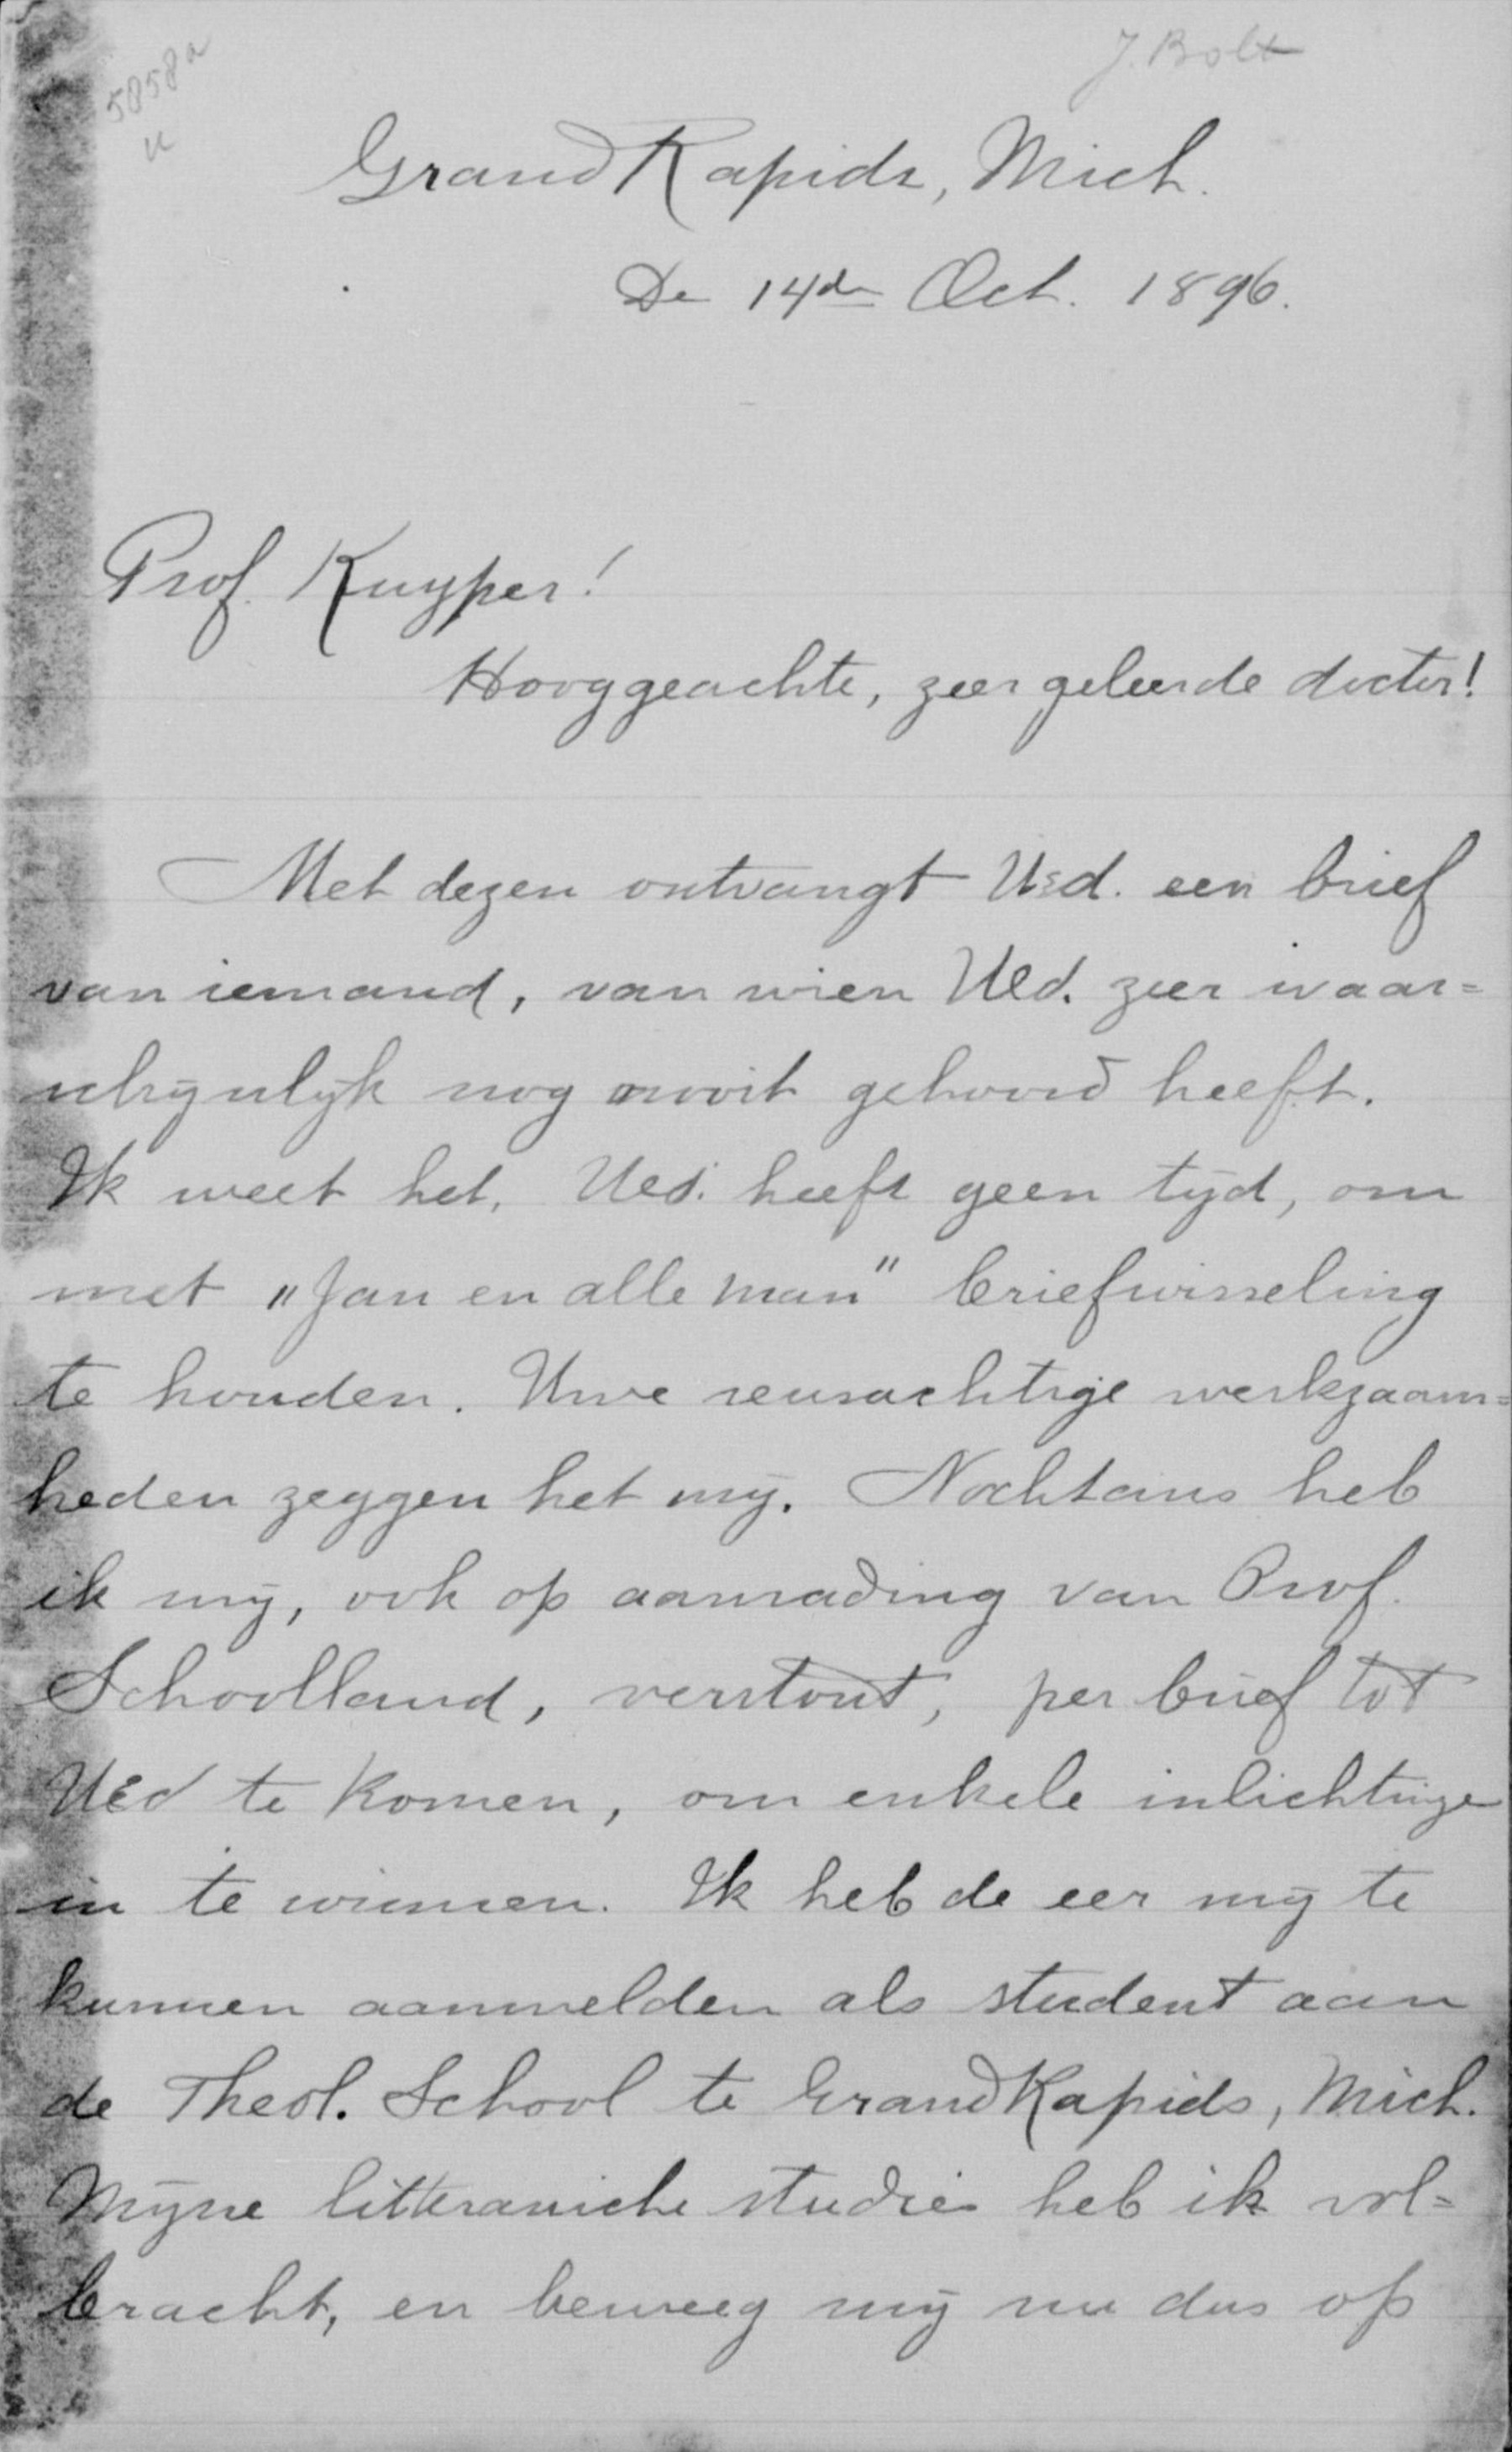 5858a
J. Bolt
Grand Rapids, Mich.
De 14de Oct. 1896.
Prof. Kuyper!
Hooggeachte, zeer geleerde doctor!
Met dezen ontvangt Ued. een brief
van iemand, van wien Ued. zeer waar=
schijnlijk nog nooit gehoord heeft.
Ik weet het, Ued. heeft geen tijd, om
met „Jan en alle man" briefwisseling
te houden. Uwe reusachtige werkzaam=
heden zeggen het mij. Nochtans heb
ik mij, ook op aanrading van Prof.
Schoolland, verstout, per brief tot
Ued te komen, om enkele inlichtinge
in te winnen. Ik heb de eer mij te
kunnen aanmelden als student aan
de Theol. School te Grand Rapids, Mich.
Mijne litterarische studie heb ik vol=
bracht, en beweeg mij nu dus op